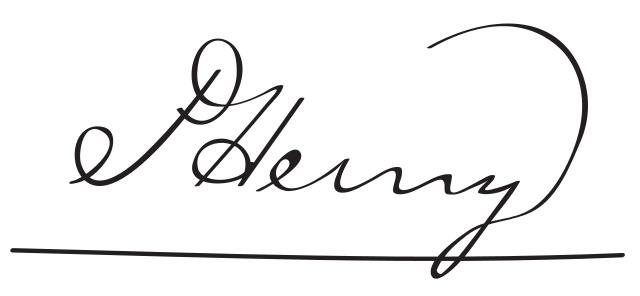 P Henry